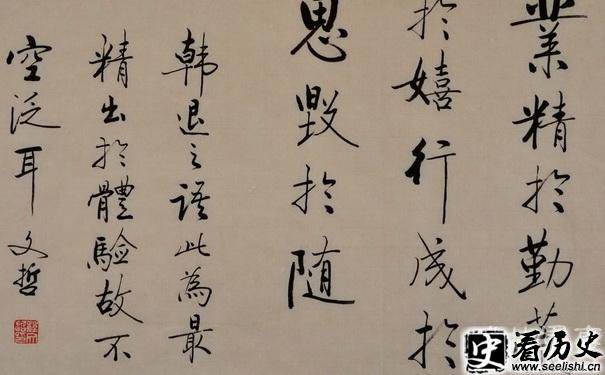 業精於勤荒
於嬉行成於
思毀於隨
韓退之語此為最
精出於體驗故不
空泛耳 文哲
史 看历史
www.seelishi.cn